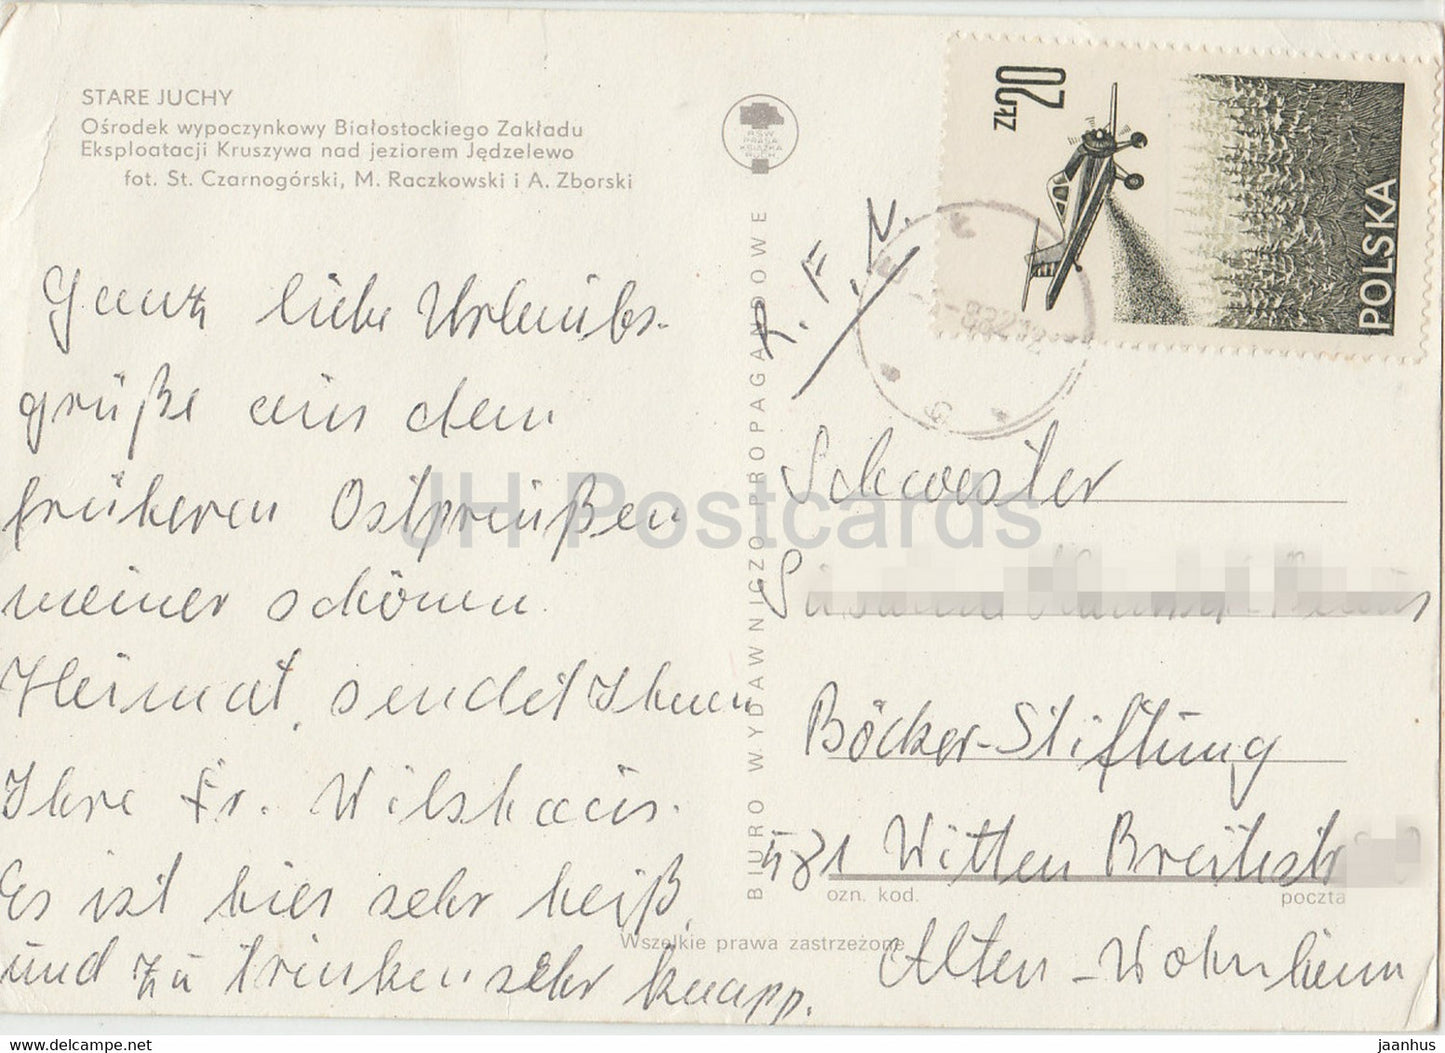 STARE JUCHY
Ośrodek wypoczynkowy Białostockiego Zakładu
Eksploatacji Kruszywa nad jeziorem Jędzelewo
fot. St. Czarnogórski, M. Raczkowski i A. Zborski
RSW PRASA KSIĄŻKA RUCH
20 ZŁ
POLSKA
R. F. N.
Ganz liebe Urlaubs-
grüße aus dem
früheren Ostpreußen
meiner schönen
Heimat, sendet Ihnen
Ihre Fr. Wilshaus.
Es ist hier sehr heiß,
und zu trinken sehr knapp.
BIURO WYDAWNICZO-PROPAGANDOWE
Schwester
Böcker-Stiftung
581 Witten Breitestr
ozn. kod.
poczta
Wszelkie prawa zastrzeżone
Alten-Wohnheim
JH Postcards
www.delcampe.net
jaanhus